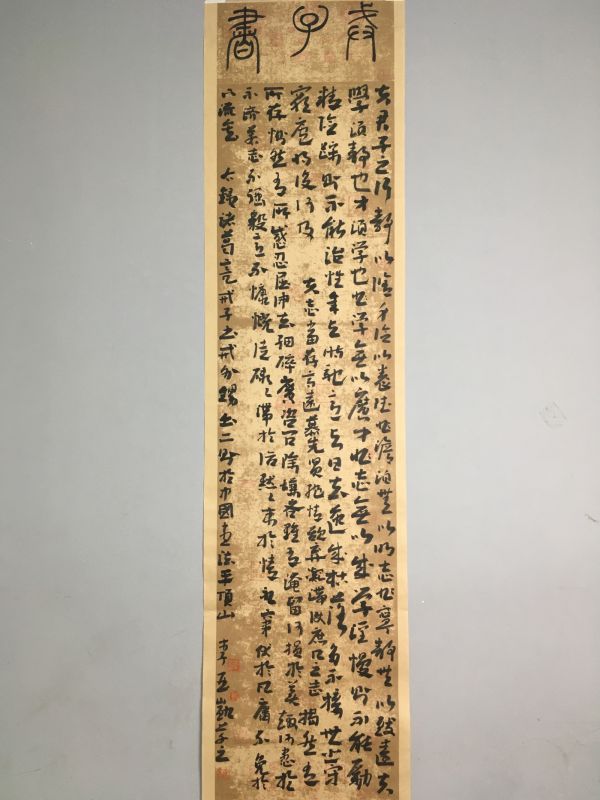 戒子書
夫君子之行靜以修身儉以養德非澹泊無以明志非寧靜無以致遠夫
學須靜也才須學也非學無以廣才非志無以成學淫慢則不能勵
精險躁則不能治性年與時馳意與日去遂成枯落多不接世悲守
窮廬將復何及 夫志當存高遠慕先賢絕情欲棄凝滯使庶几之志揭然有
所存惻然有所感忍屈伸去細碎廣咨問除嫌吝雖有淹留何損於美趣何患於
不濟若志不強毅意不慷慨徒碌々滯於俗默々束於情永竄伏於凡庸不免於
下流矣 右錄諸葛亮戒子書戒外甥書二則於中國書法平頂山 李亞